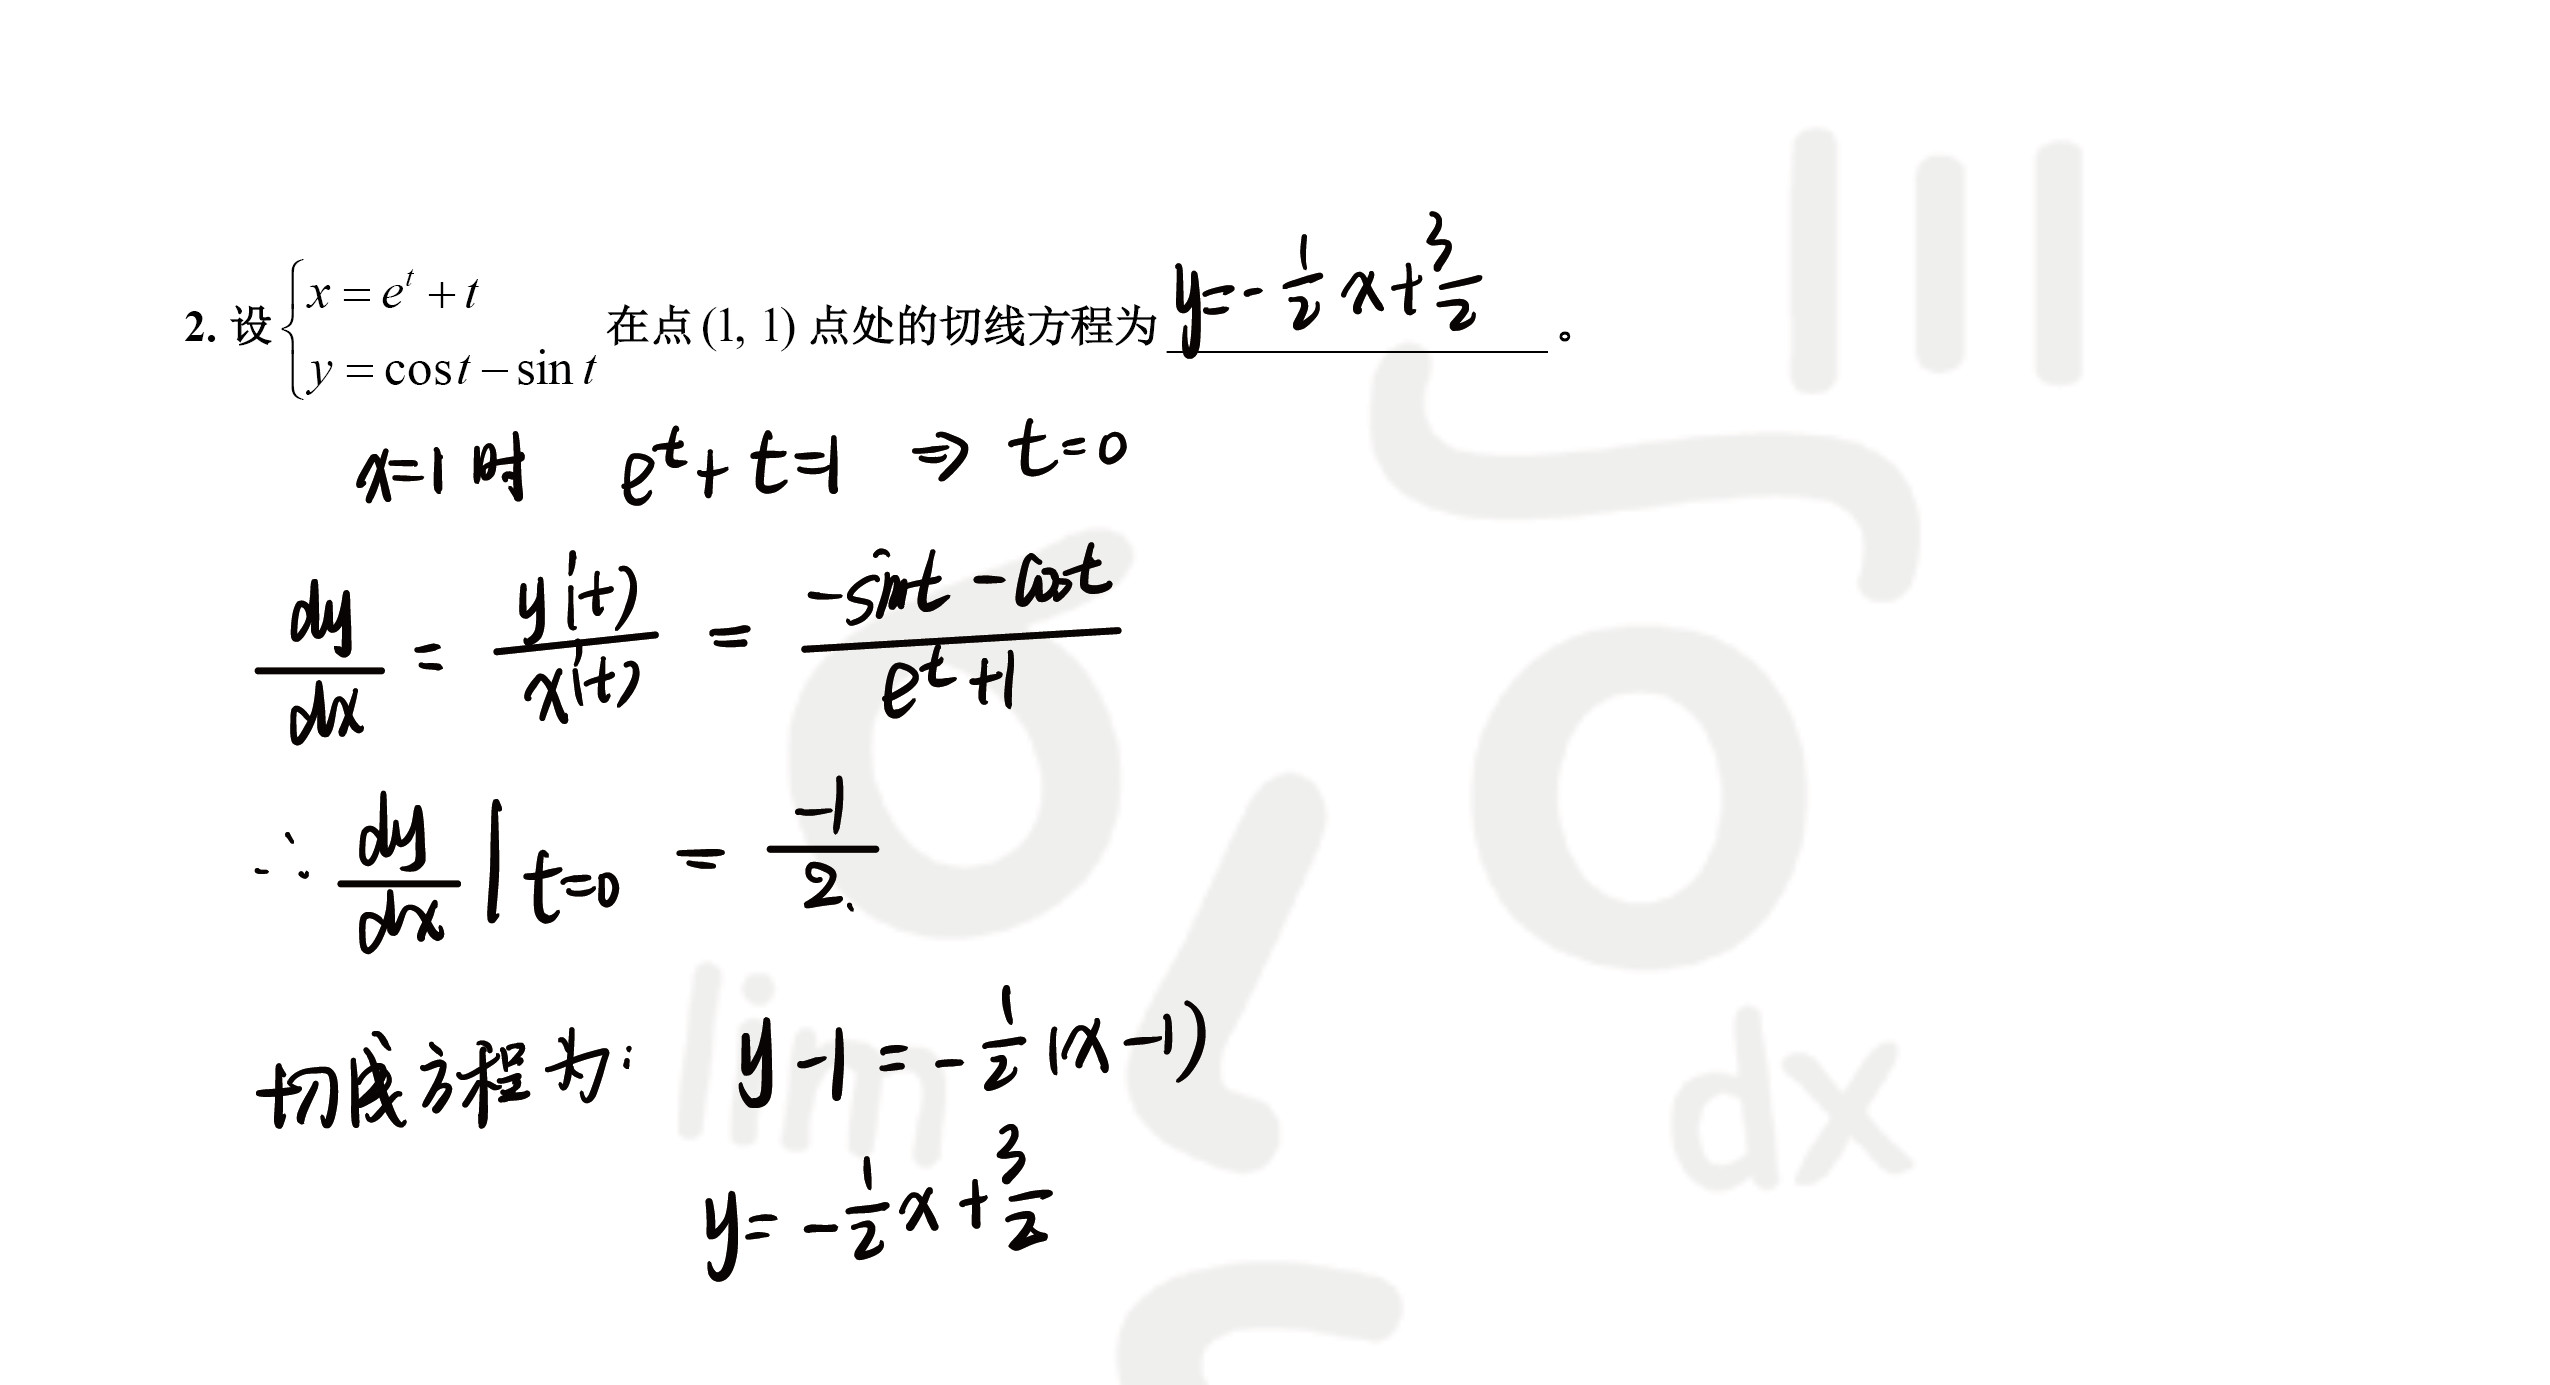 2. 设 { x = e^t + t
y = cos t − sin t 在点 (1, 1) 点处的切线方程为 y = -1/2 x + 3/2 。
x=1 时 e^t + t = 1 ⇒ t = 0
dy/dx = y'(t)/x'(t) = (-sint - cost)/(e^t + 1)
∴ dy/dx | t=0 = -1/2.
切线方程为: y - 1 = -1/2 (x - 1)
y = -1/2 x + 3/2
lim
dx